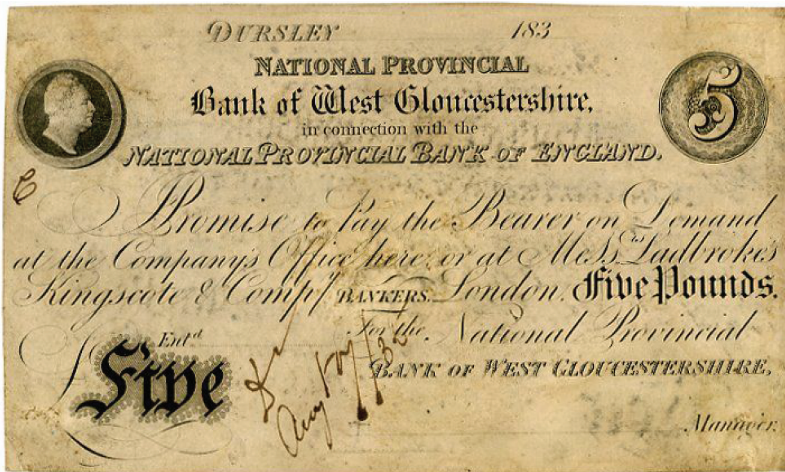 DURSLEY 183
NATIONAL PROVINCIAL
Bank of West Gloucestershire,
in connection with the
NATIONAL PROVINCIAL BANK OF ENGLAND.
5
I Promise to Pay the Bearer on Demand
at the Company's Office here, or at Mess.rs Ladbroke's
Kingscote & Comp.y BANKERS. London. Five Pounds.
Ent.d For the National Provincial
Five BANK OF WEST GLOUCESTERSHIRE,
Aug
Manager.